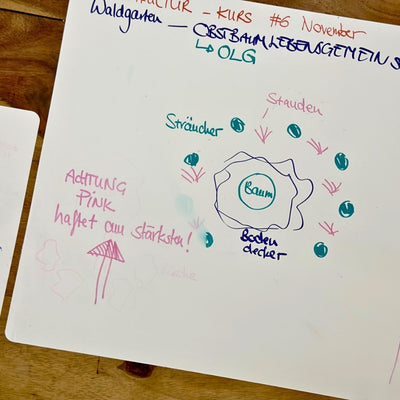 KULTUR - KURS #6 November
Waldgarten — OBSTBAUMLEBENSGEMEINS
↳ OLG
Stauden
Sträucher
Baum
Boden
decker
ACHTUNG
PINK
haftet am stärksten!